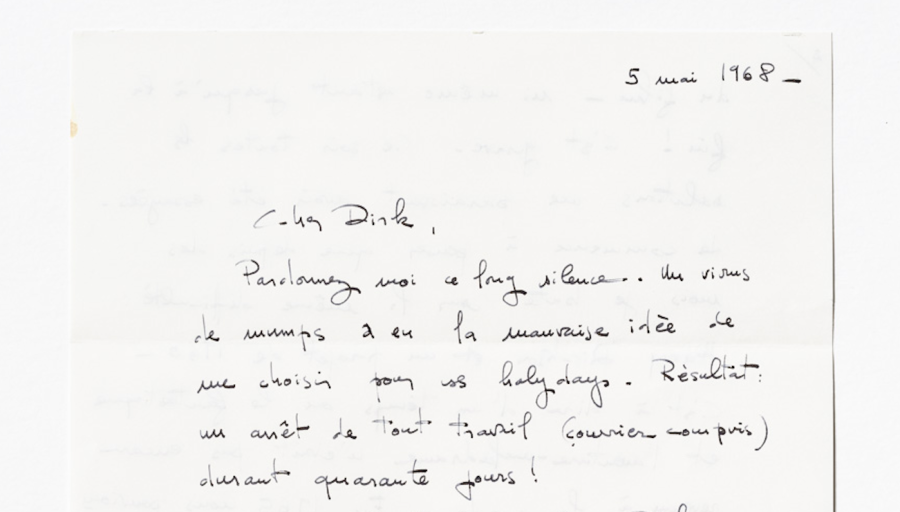 5 mai 1968 —
Cher Dirk,
Pardonnez moi ce long silence.. Un virus
de mumps a eu la mauvaise idée de
me choisir pour ses holydays. Résultat:
un arrêt de tout travail (courrier compris)
durant quarante jours !